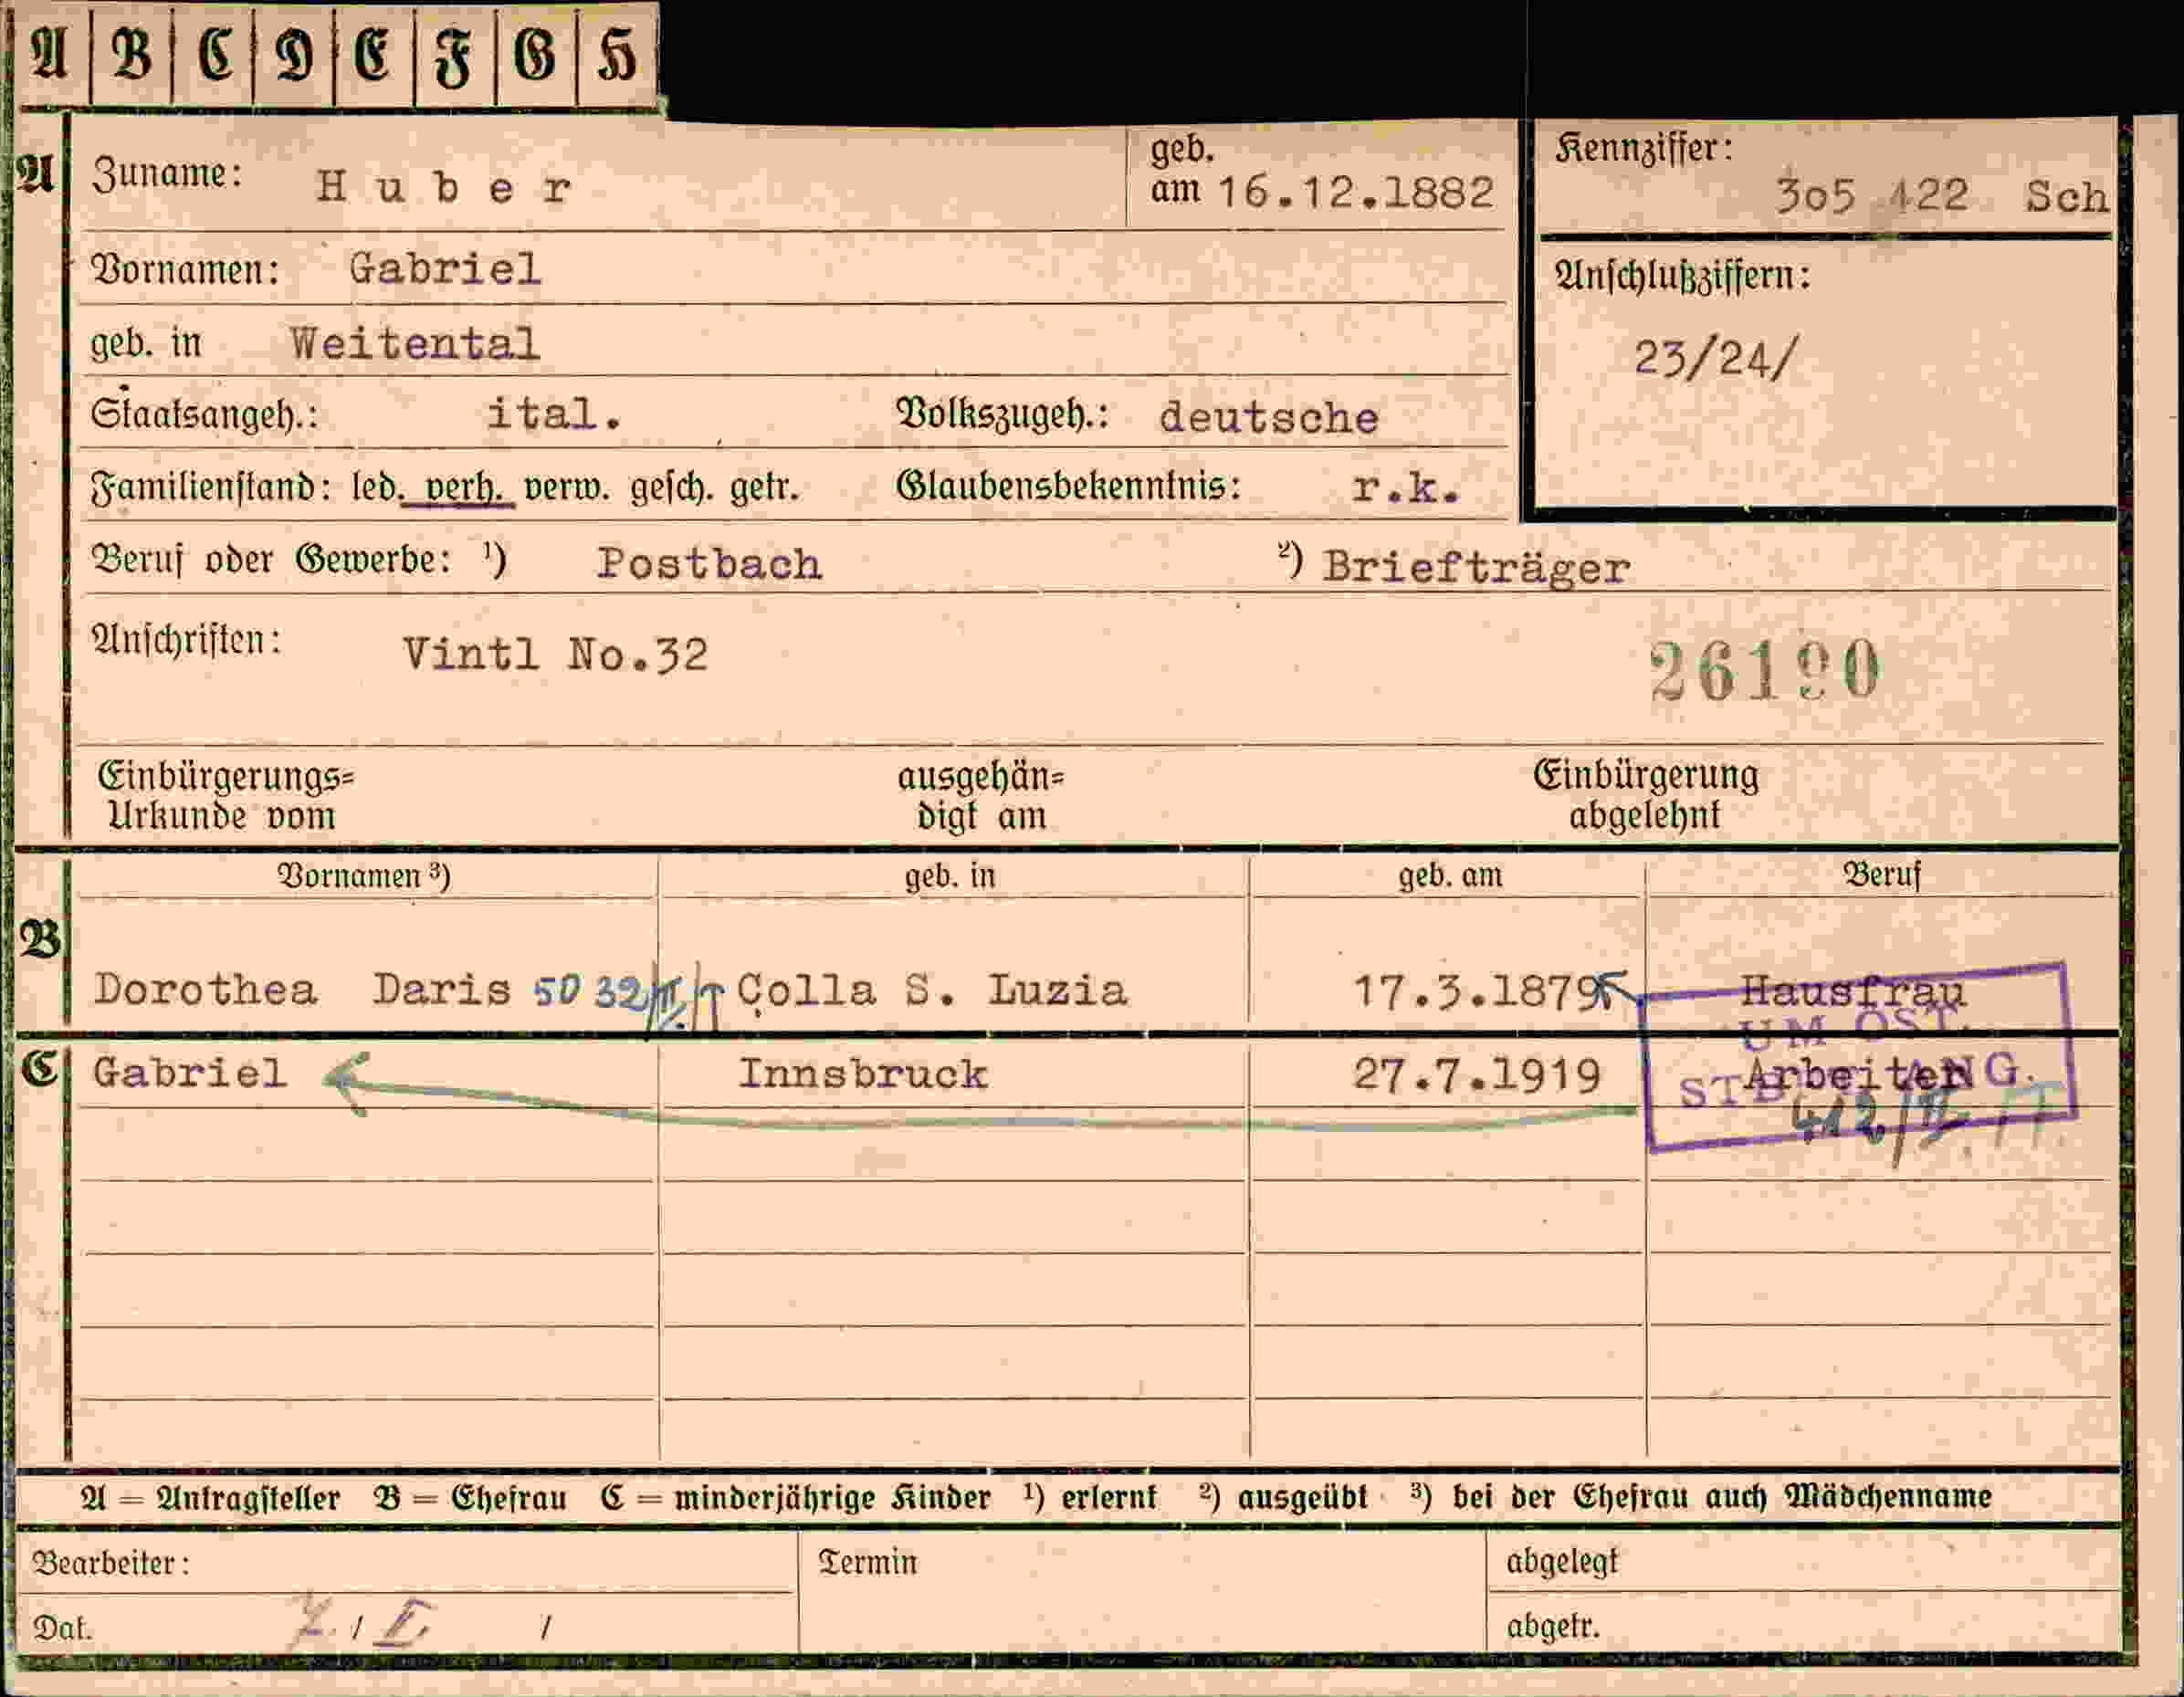 A B C D E F G H
A Zuname: Huber geb. am 16.12.1882
Kennziffer: 305 422 Sch
Vornamen: Gabriel
Anschlußziffern:
23/24/
geb. in Weitental
Staatsangeh.: ital. Volkszugeh.: deutsche
Familienstand: led. verh. verw. gesch. getr. Glaubensbekenntnis: r.k.
Beruf oder Gewerbe: ¹) Postbach ²) Briefträger
Anschriften: Vintl No.32
26190
Einbürgerungs= Urkunde vom ausgehän= digt am Einbürgerung abgelehnt
Vornamen ³) geb. in geb. am Beruf
B Dorothea Daris 5032 Colla S. Luzia 17.3.1879 Hausfrau
UM OST.
C Gabriel Innsbruck 27.7.1919 Arbeiter
412/II.
A = Antragsteller B = Ehefrau C = minderjährige Kinder ¹) erlernt ²) ausgeübt ³) bei der Ehefrau auch Mädchenname
Bearbeiter: Termin abgelegt
Dat. abgetr.